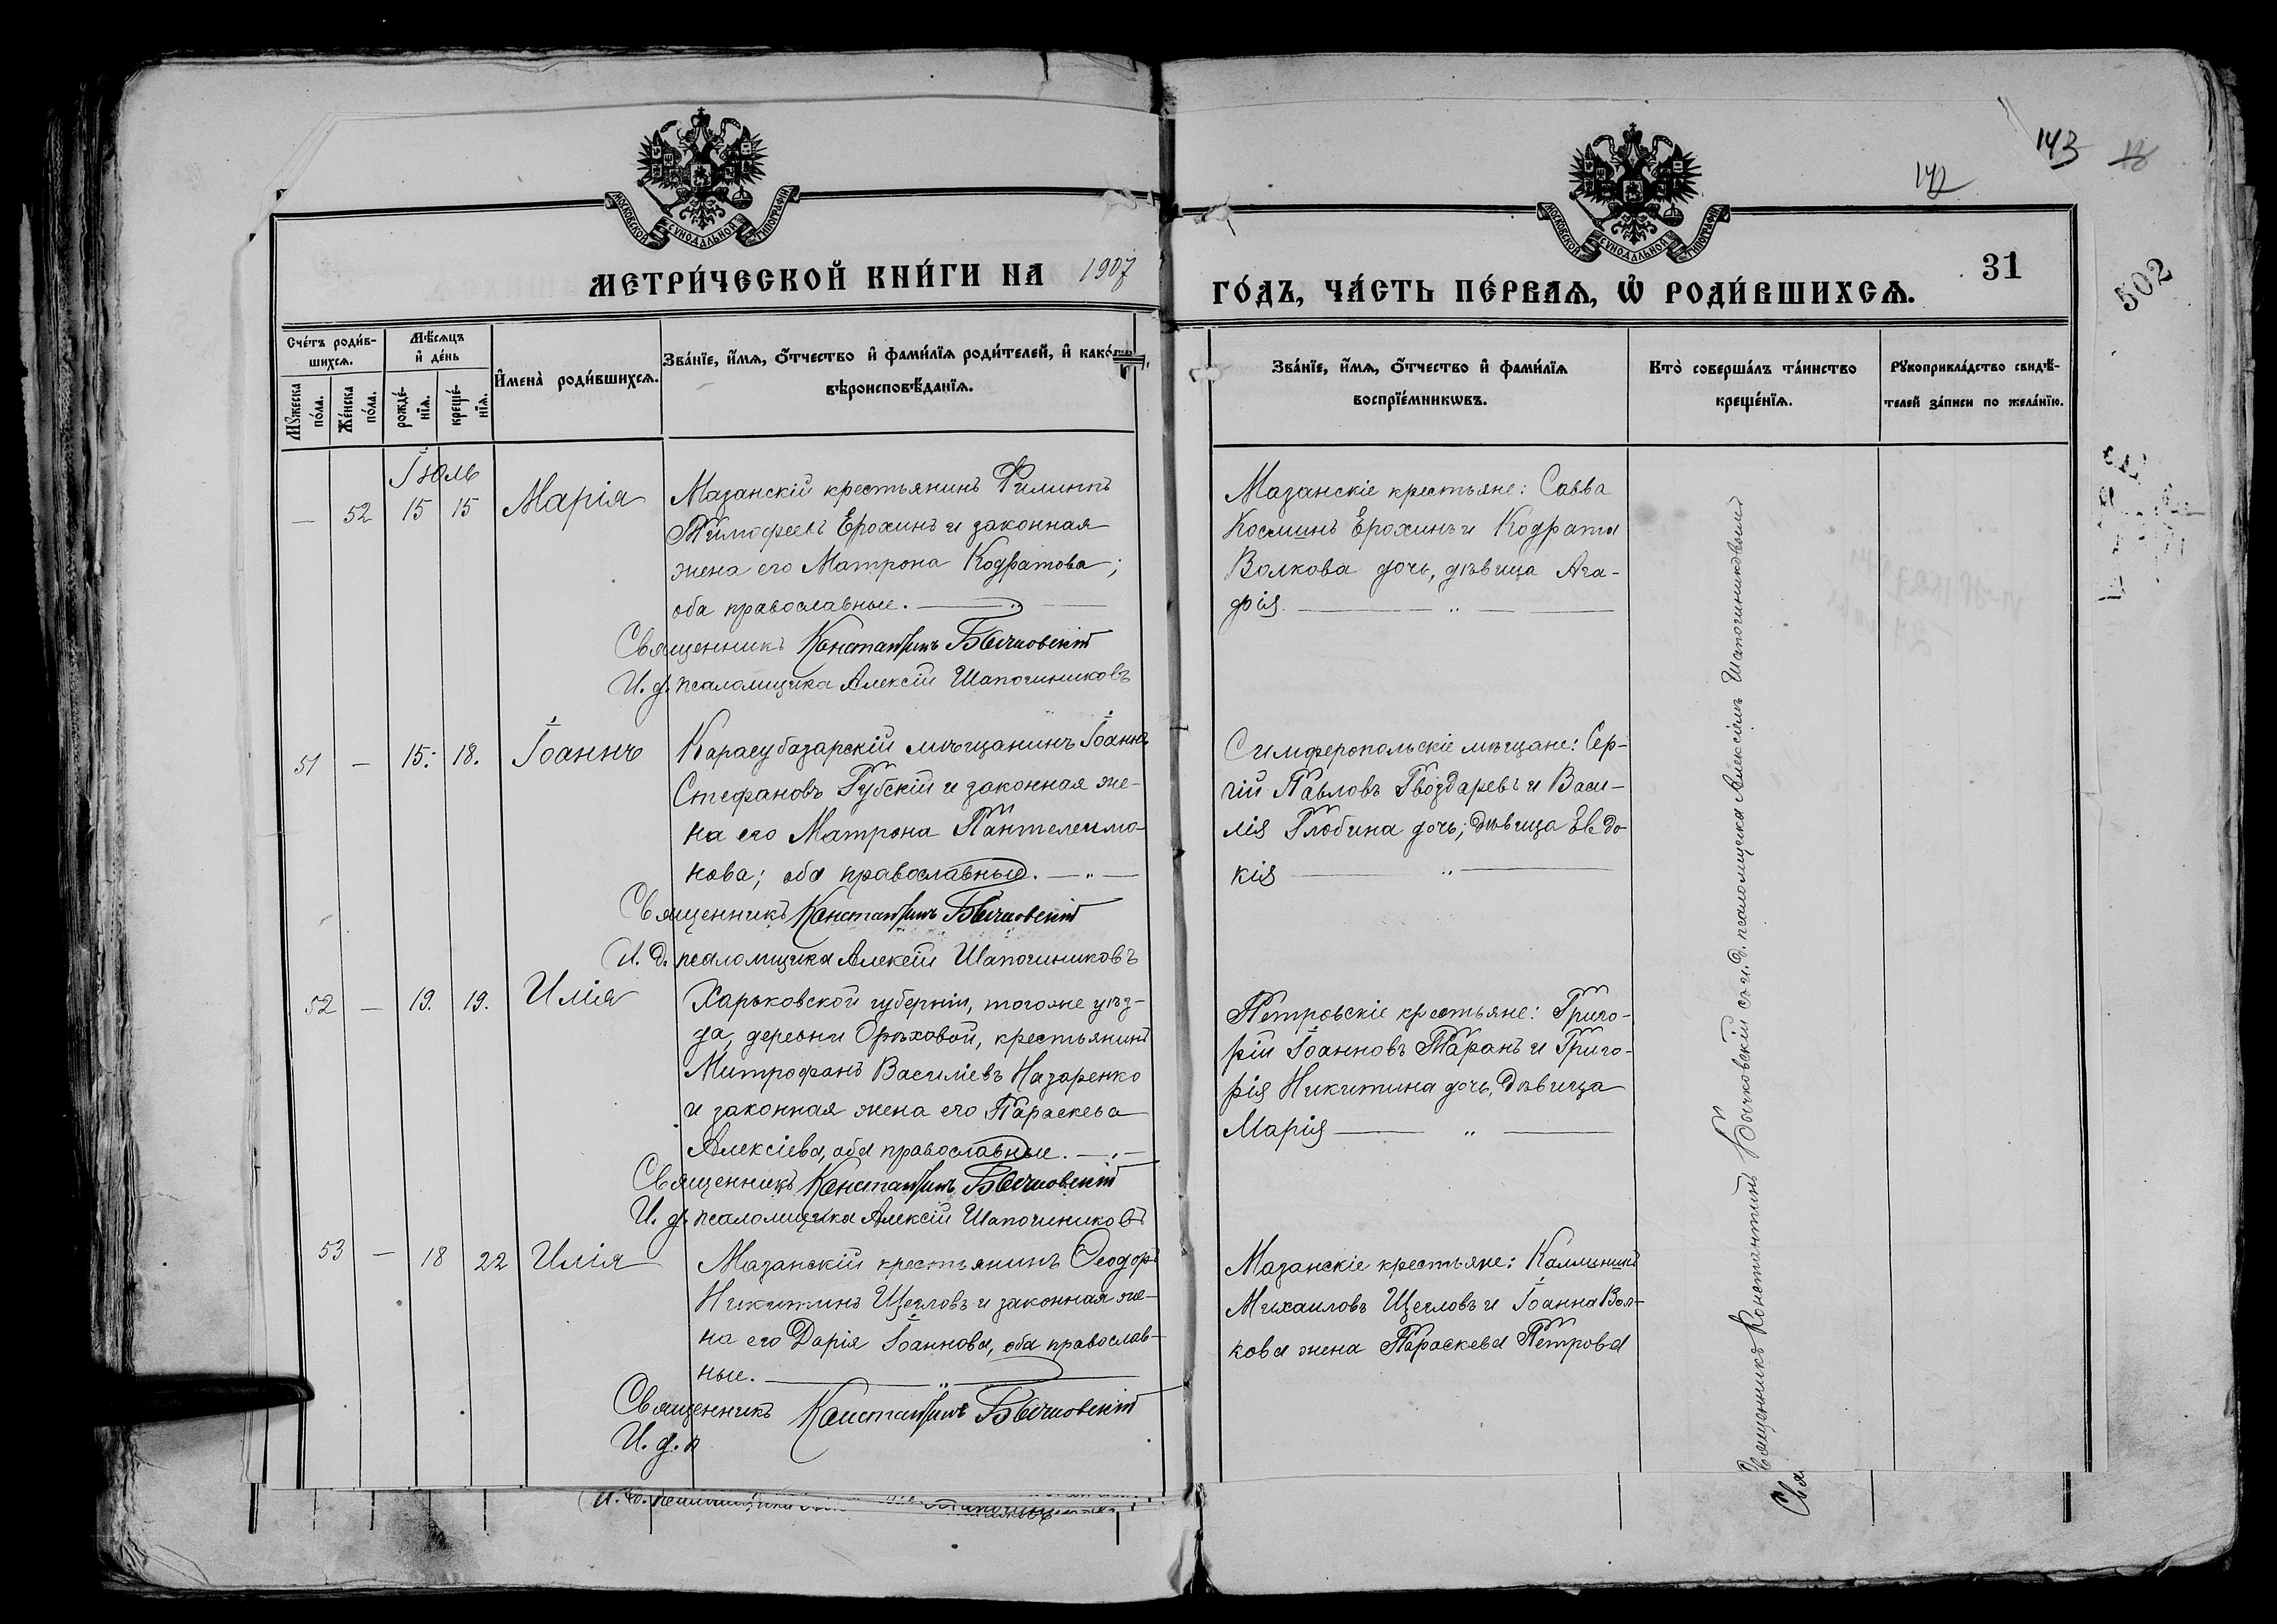 143 18
142
МОСКОВСКОЙ СУНОДАЛЬНОЙ ТИПОГРАФІИ
МОСКОВСКОЙ СУНОДАЛЬНОЙ ТИПОГРАФІИ
МЕТРИ́ЧЕСКОЙ КНИ́ГИ НА 1907
ГО́ДЪ, ЧА́СТЬ ПЕ́РВАЯ, Ѿ РОДИ́ВШИХСЯ.
31
502
Сче́тъ роди́в-
шихся.
Мѣ́сяцъ
и҆ де́нь
Мꙋ́жеска по́ла.
Же́нска по́ла.
рожде́-нїя.
креще́-нїя.
И҆мена̀ роди́вшихся.
Зва́нїе, и҆́мя, ѻ҆́тчество и҆ фами́лїя роди́телей, и҆ како́гѡ
вѣроисповѣ́данїя.
Зва́нїе, и҆́мя, ѻ҆́тчество и҆ фами́лїя
воспрїе́мникѡвъ.
Кто̀ соверша́лъ та́инство
креще́нїя.
Рꙋкоприкла́дство свидѣ́-
телей за́писи по жела́нїю.
Іюль
— 52 15 15 Марія
Мазанскій крестьянинъ Филиппъ
Тимофеевъ Ерохинъ и законная
жена его Матрона Кодратова;
оба православные.
Священникъ Константинъ Бычковскій
И. д. псаломщика Алексій Шапочниковъ
Мазанскіе крестьяне: Савва
Косминъ Ерохинъ и Кодрата
Волкова дочь, дѣвица Ага-
фія.
51 — 15. 18. Іоаннъ
Карасубазарскій мѣщанинъ Іоаннъ
Стефановъ Губскій и законная же-
на его Матрона Пантелеимо-
нова; оба православные.
Священникъ Константинъ Бычковскій
И. д. псаломщика Алексій Шапочниковъ
Симферопольскіе мѣщане: Сер-
гій Павловъ Гвоздаревъ и Васи-
лія Глобина дочь; дѣвица Евдо-
кія
52 — 19. 19. Илія
Харьковской губерніи, тогоже уѣз-
да, деревни Орѣховой, крестьянинъ
Митрофанъ Василіевъ Назаренко
и законная жена его Параскева
Алексіева, оба православные.
Священникъ Константинъ Бычковскій
И. д. псаломщика Алексій Шапочниковъ
Петровскіе крестьяне: Григо-
рій Іоанновъ Таранъ и Григо-
рія Никитина дочь, дѣвица
Марія
53 — 18 22 Илія
Мазанскій крестьянинъ Ѳеодоръ
Никитинъ Щегловъ и законная же-
на его Дарія Іоаннова, оба православ-
ные.
Священникъ Константинъ Бычковскій
И. д. п
Мазанскіе крестьяне: Каллиникъ
Михаиловъ Щегловъ и Іоанна Вол-
кова жена Параскева Петрова
Священникъ Константинъ Бычковскій съ и. д. псаломщика Алексіемъ Шапочниковымъ
Свя